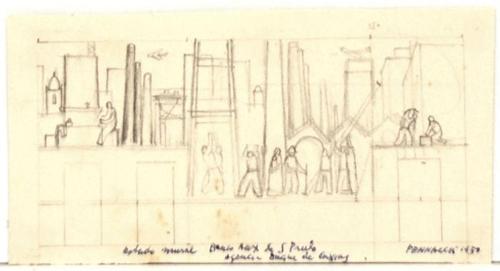 estudo mural Banco Aux de S Paulo
Agencia Duque de Caxias
PENNACCHI